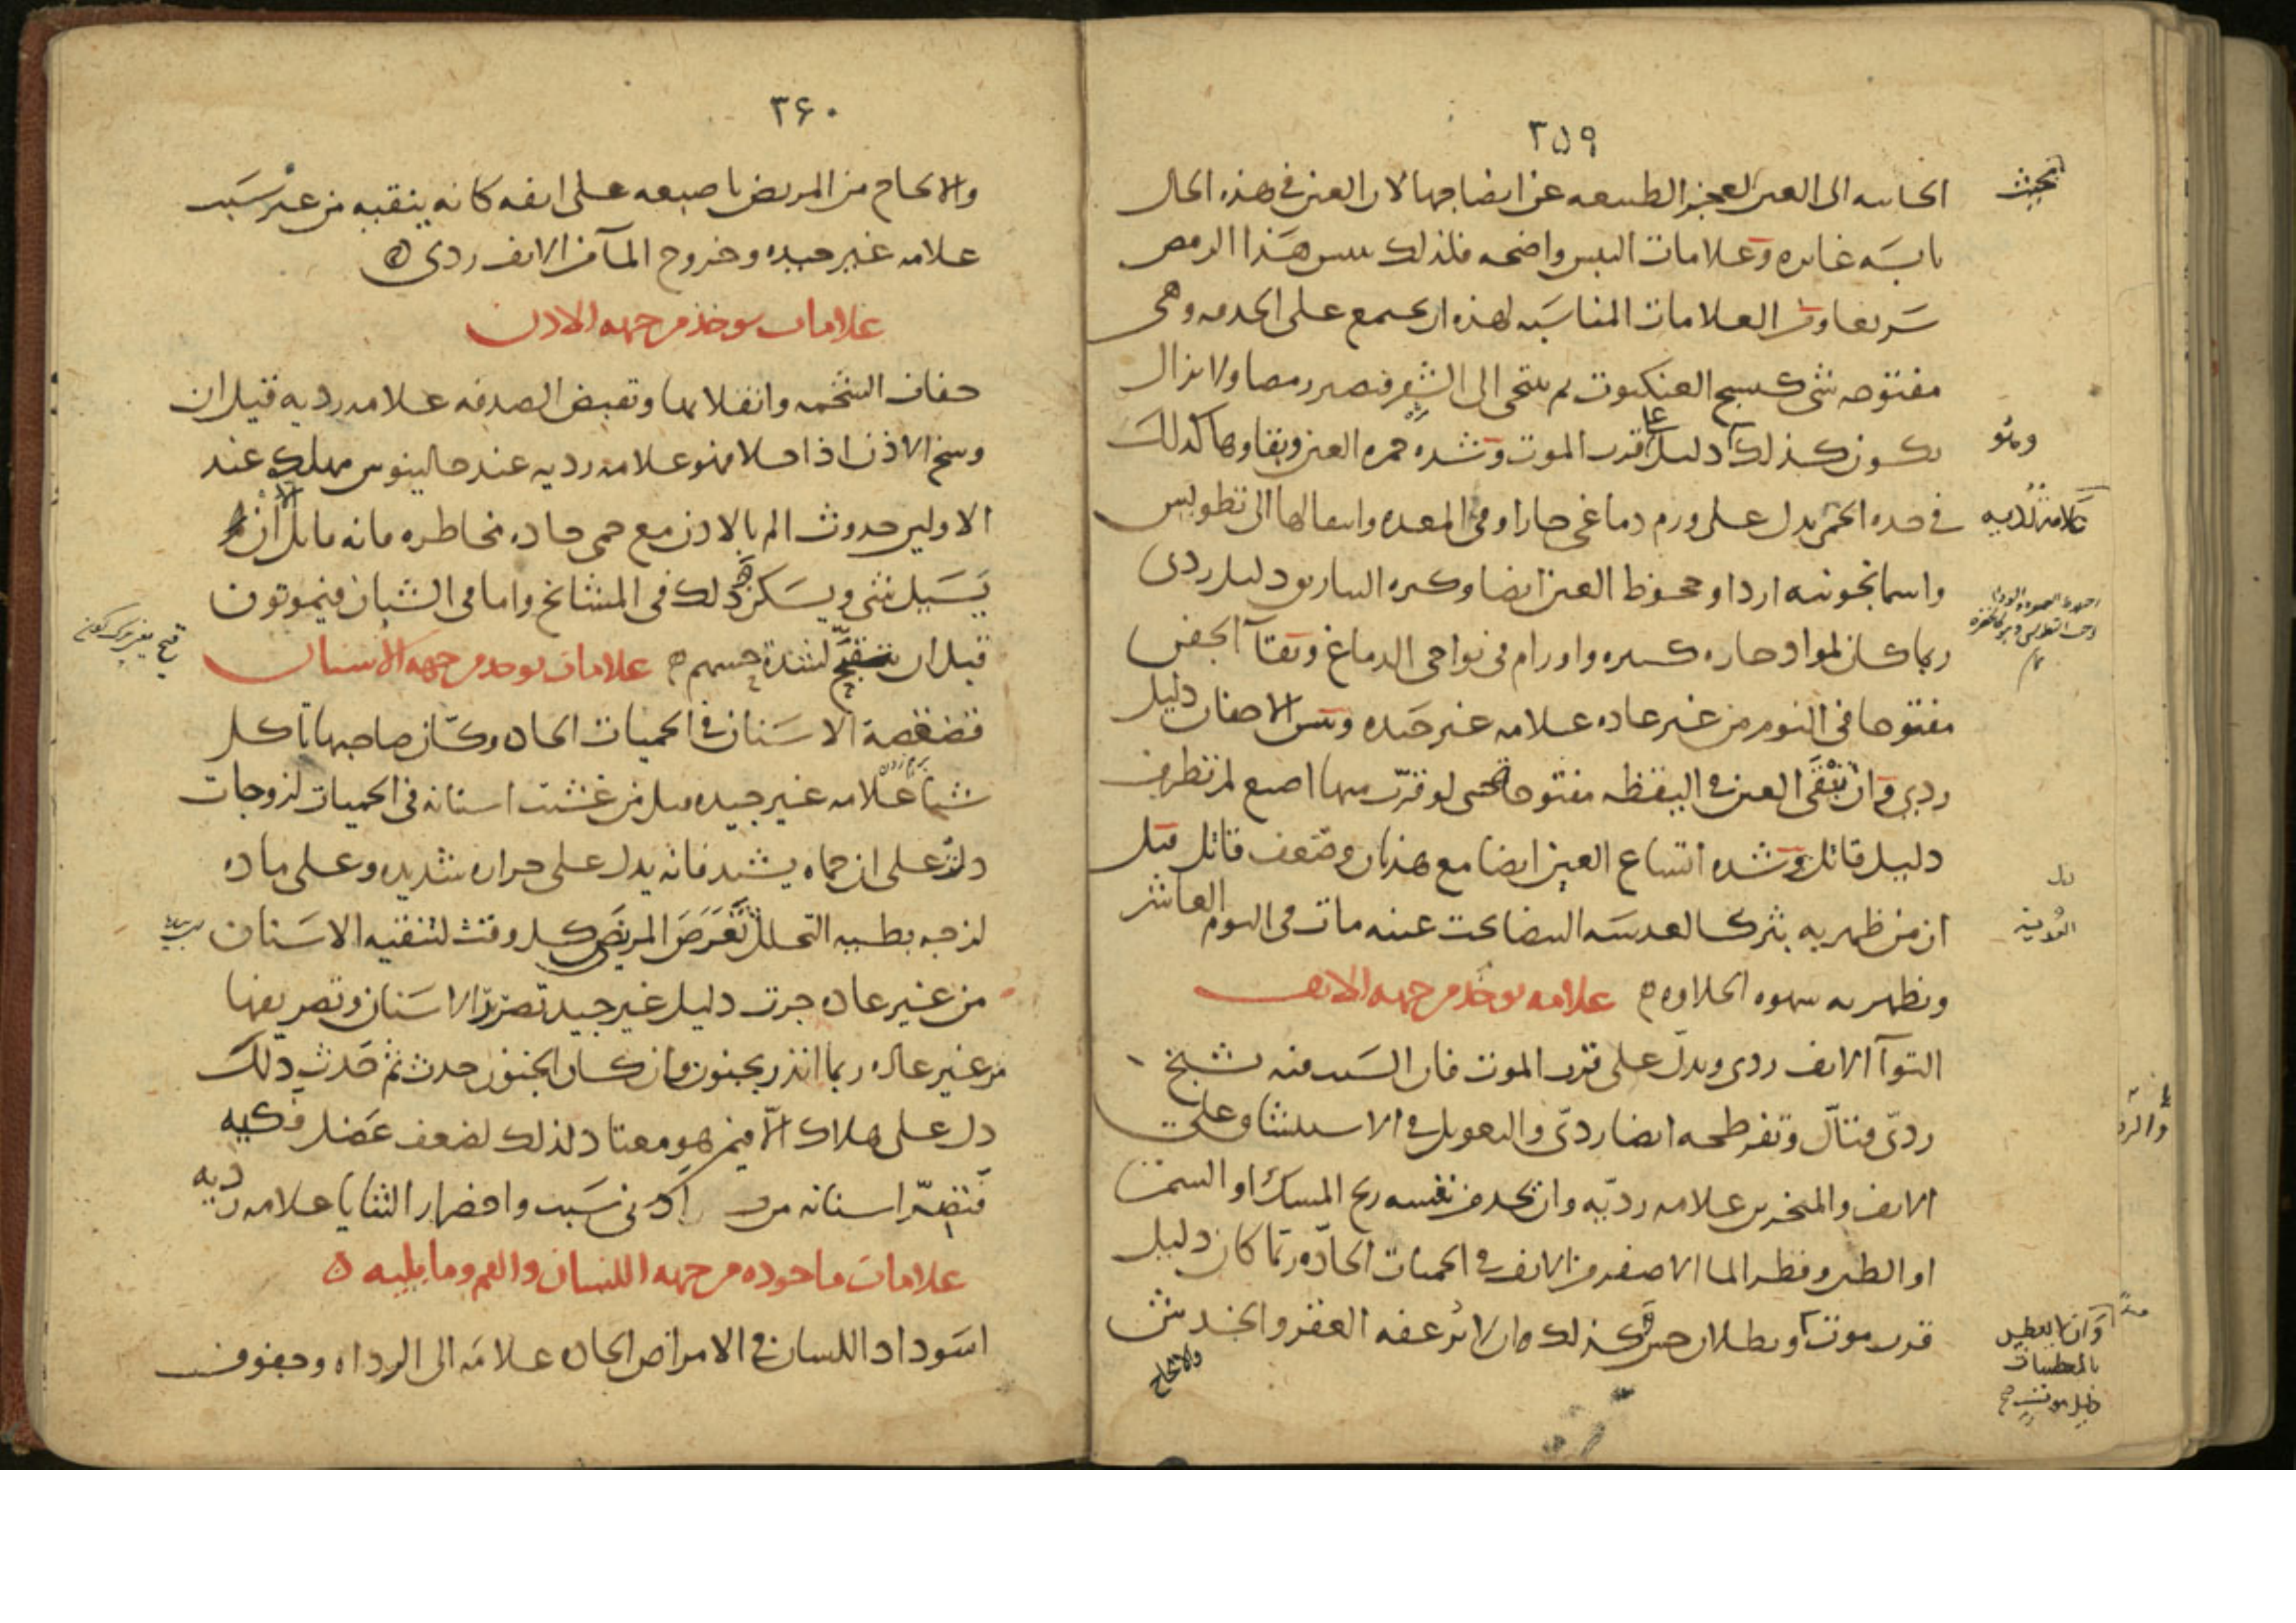 ٣٥٩
الجاسه الى العين لعجز الطبيعه عن انضاجها لان العين فى هذه الحال
يابسَه غايره وعلامات اليبس واضحه فلذلك ييبس هَذا الرمص
سَريعا ومن العلامات المناسَبه لهذه ان يجتمع على الحدقه وهى
مفتوحه شى كنسج العنكبوت ثم يتنحى الى الشفر فيصير رمصا ولا يزال
يكون كذلك دليل على قرب الموت وشده حمره العين وبقاوها كذلكَ
فى حده الحمى يدل على ورم دماغى حار او فى المعده وانتقالها الى تطويس
واسمانجونيه اردا وجحوظ العين ايضا وكثره التباريق دليل ردى
ربما كان لمواد حاره كثيره واورام فى نواحى الدماغ وبقآ الجفن
مفتوحا فى النوم من غير عاده علامه غير جَيده ويبس الاجفان دليل
ردى وان تبقى العين فى اليقظه مفتوحا حتى لو قرّب منها اصبع لم تطرف
دليل قاتل وشده اتساع العين ايضا مع هذيان وضعف قاتل قيل
ان من ظهر به بثر كالعدسَه البيضا تحت عينه مات فى اليوم العاشر
ويظهر به شهوه الحلاوه علامه توخذ من جهه الانف
التوآ الانف ردى ويدل على قرب الموت فان السَبب فيه تشنج
ردىّ قتّال وتفرطحه ايضا ردىّ والتعويل فى الاستنشاق على
الانف والمنخرين علامه رديّه وان يجد من نفسه ريح المسك او السمن
او الطين وقطر الما الاصفر من الانف فى الحميات الحادّه ربّما كان دليل
قرب موت وبطلان حس كذلك وان لا يرعفه العقر والخدش
والالحاح
٣٦٠
والالحاح من المريض باصبعه على انفه كانه ينقبه من غير سَبب
علامه غير جيده وخروج المآ من الانف ردى
علامات توخذ من جهه الاذن
جفاف الشحمه وانقلابها وتقبض الصدفه علامه رديه قيل ان
وسخ الاذن اذا حلا فهو علامه رديه عند جالينوس مهلك عند
الاولين حدوث الم بالاذن مع حمى حاده مخاطره فانه قاتل الا ان
يَسَيل شى ويسَكن ذلك فى المشائخ واما فى الشبان فيموتون
قبل ان يتقيّح لشدة حسهم علامات توخذ من جهه الاسنان
قضقضة الاسَنان فى الحميات الحاده وكاّن صاحبها يَاكل
شيا علامه غير جيده قيل من غشت اسنانه فى الحميات لزوجات
دلت على ان حماه يشتد فانه يدل على حراره شديده وعلى ماده
لزجه بطيه التحلل تعرَضَ المريض كل وقت لتنقيه الاسَنان
من غير عاده جرت دليل غير جيد تصرير الاسَنان وتصريفها
من غير عاده ربما انذر بجنون وان كان الجنون حدث ثم حَدث ذلك
دل على هلاك الاّ فيمن هو معتاد لذلك لضعف عَضل فكيه
فتصرّ اسنانه من ادنى سَبب واخضرار الثنايا علامه رديه
علامات ماخوذه من جهه اللسان والفم وما يليه
اسَوداد اللسان فى الامراض الحاده علامَه الى الرداه وجفوف